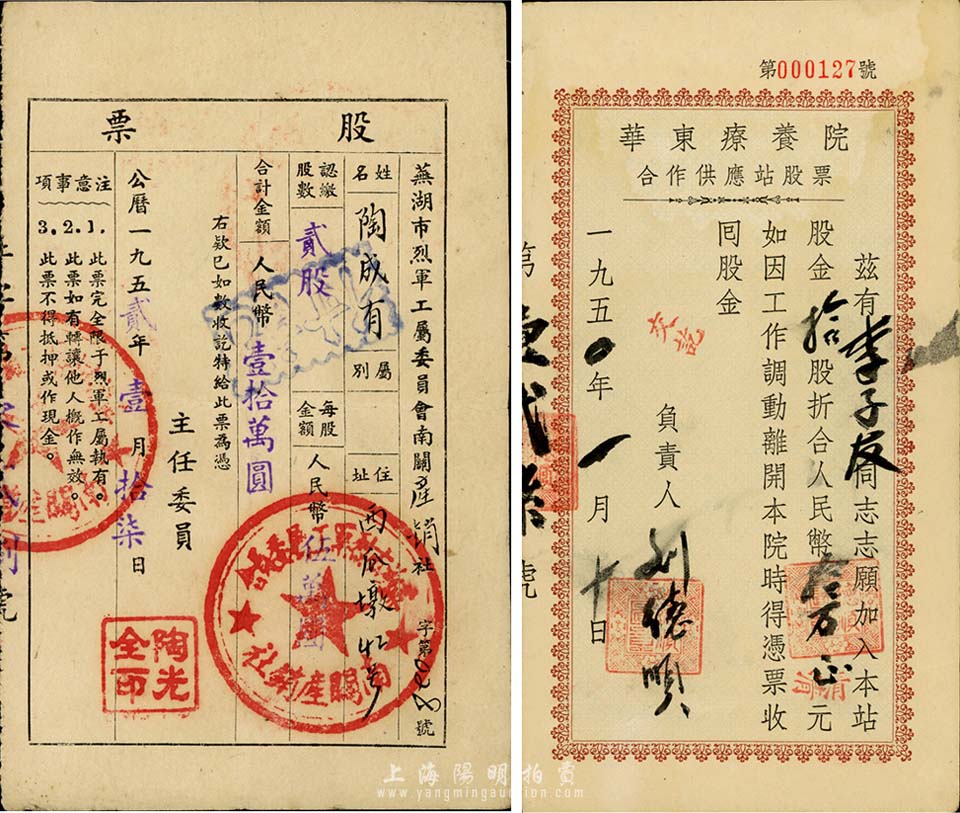 股票
蕪湖市烈軍工屬委員會南關產銷社 字第 號
姓名 陶成有 屬別 住址 西瓜墩
認繳股數 貳股 每股金額 人民幣 伍萬圓
合計金額 人民幣 壹拾萬圓
右款已如數收訖特給此票為憑
主任委員
陶光全印
公曆一九五貳年壹月拾柒日
注意事項
1. 此票完全限于烈軍工屬執有。
2. 此票如有轉讓他人概作無效。
3. 此票不得抵押或作現金。
號
第000127號
華東療養院
合作供應站股票
茲有李子友同志志願加入本站
股金拾股折合人民幣拾万正元
如因工作調動離開本院時得憑票收
回股金
交訖
負責人 劉德順
一九五0年一月十日
第 號
上海陽明拍賣
www.yangmingauction.com